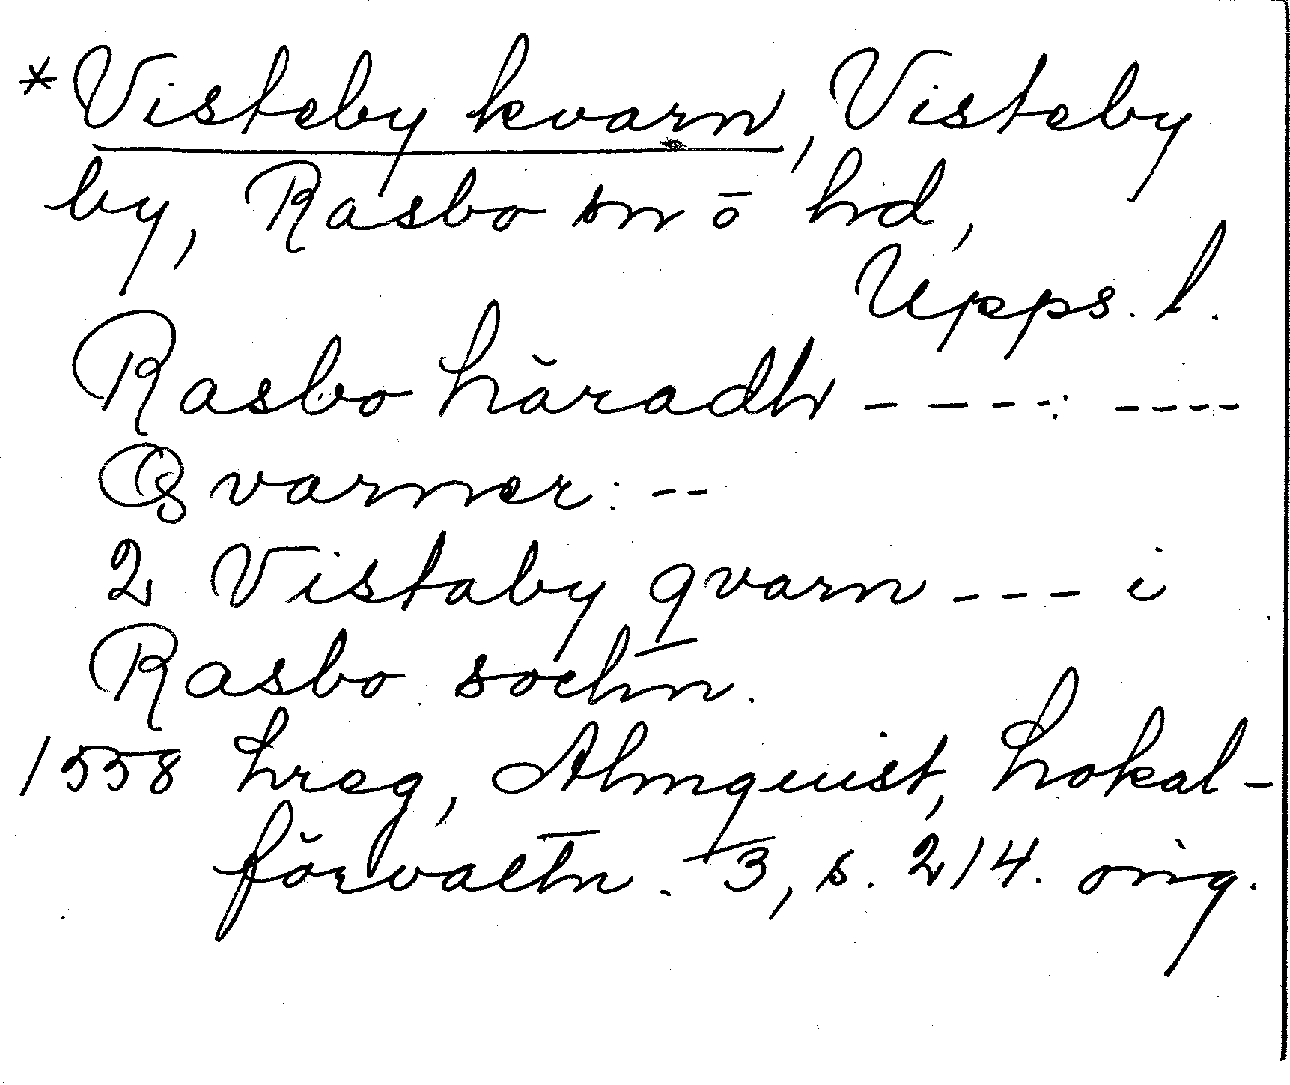 *Visteby kvarn, Visteby
by, Rasbo sn o hd,
Upps. l.
Rasbo häradh – – – – : – – – –
Qvarner: – –
2 Vistaby qvarn – – – i
Rasbo sochn.
1558 hreg, Almquist, Lokal-
förvaltn. 3, s. 214. orig.